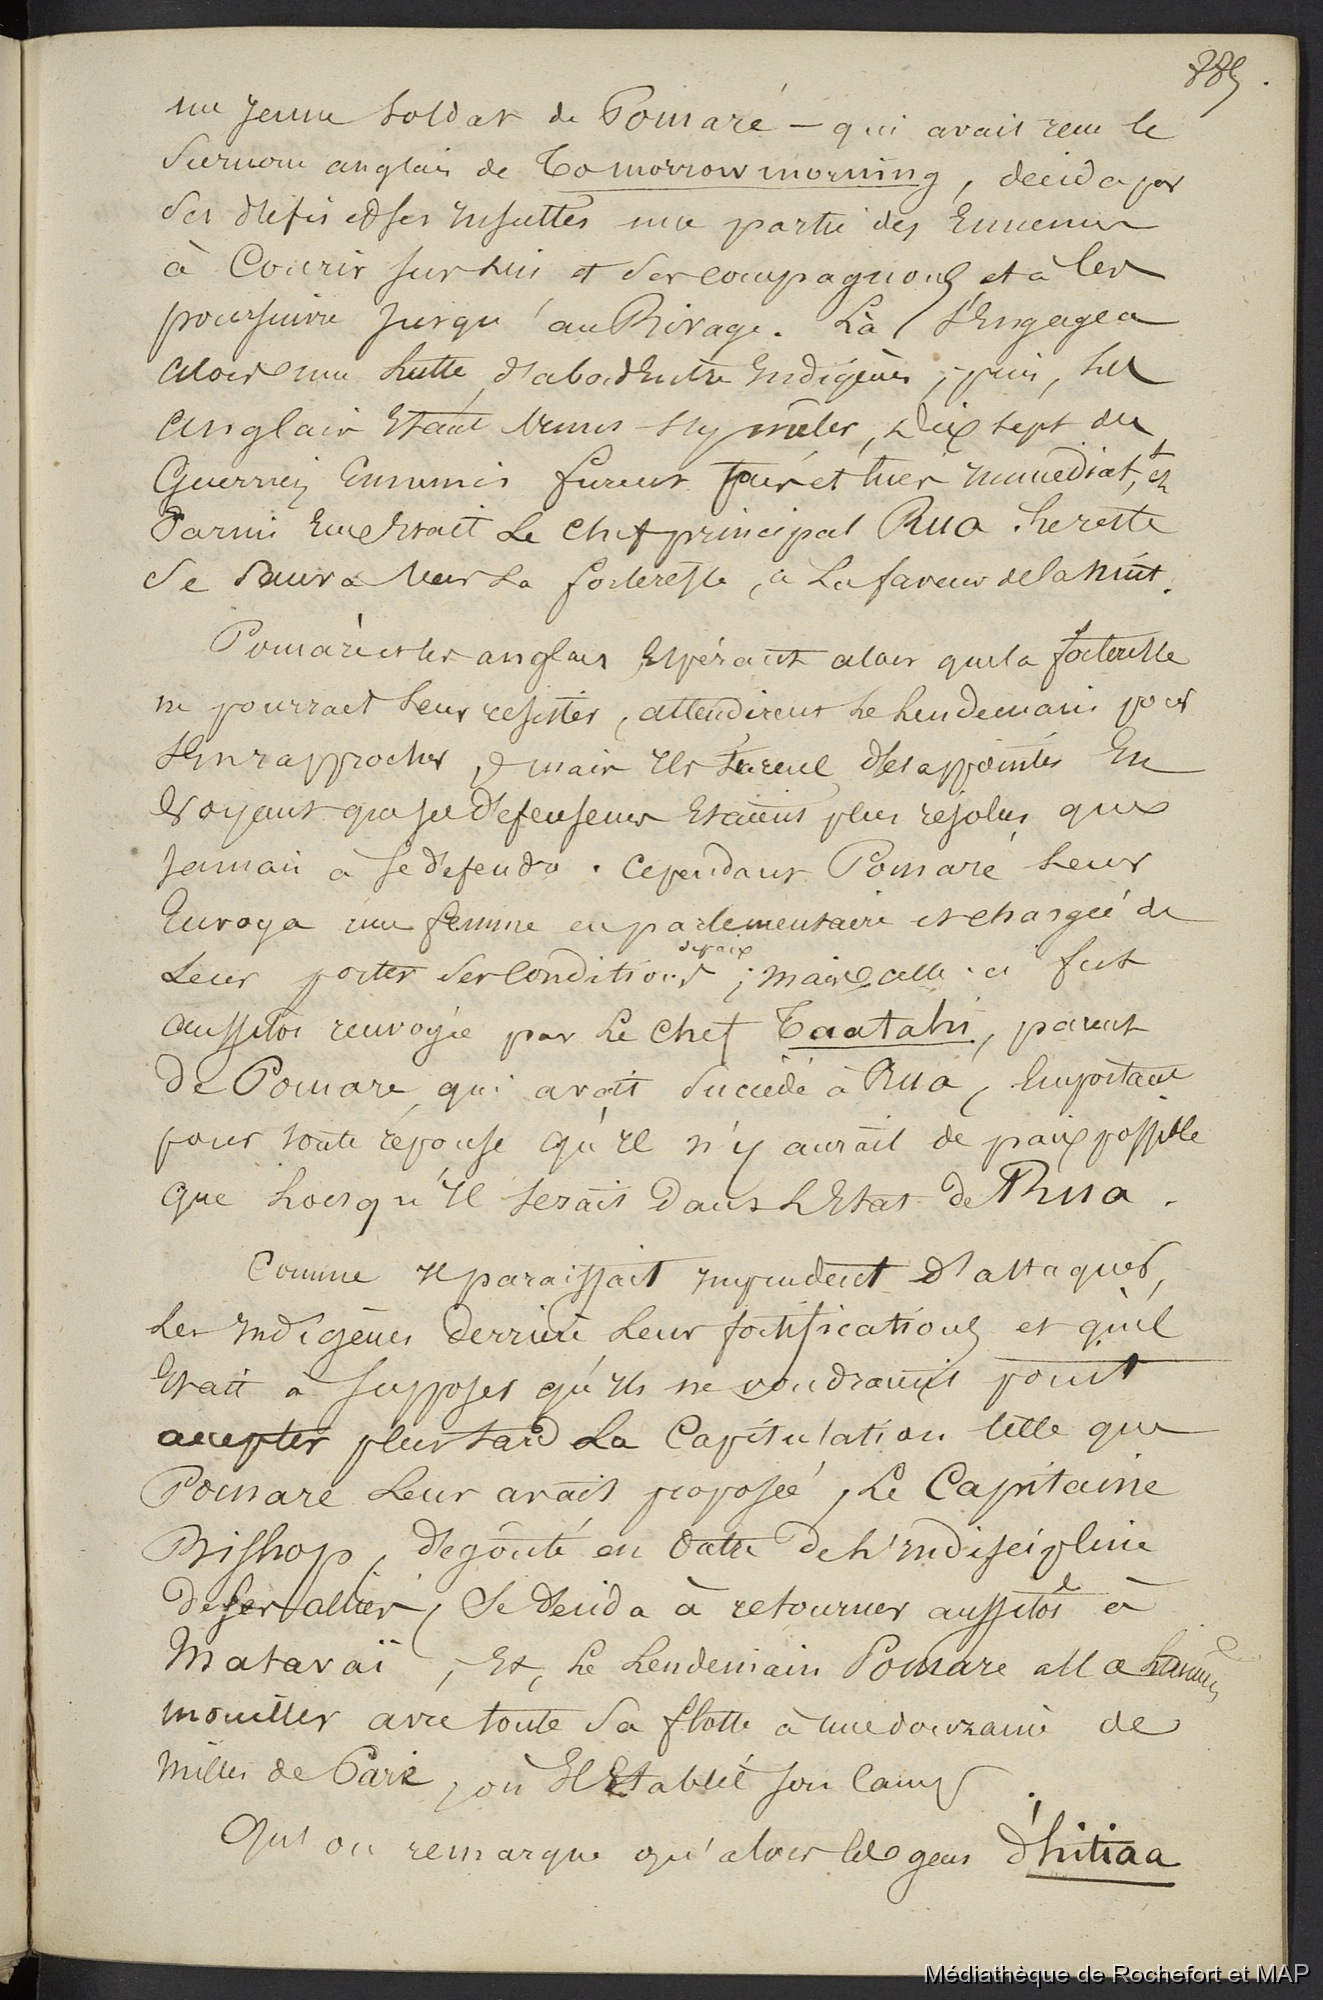 un jeune soldat de Pomaré – qui avait reçu le
surnom anglais de Tomorrow morning, decida par
ses défis et ses insultes une partie des Ennemis
à Courir sur lui et ses compagnons et à les
poursuivre jusqu'au Rivage. Là s'Engagea
alors une lutte, d'abord Entre Indigènes, puis, les
Anglais Etant venus s'y mêler, Dix sept des
Guerriers Ennemis furent pris et tués immediat.t, et
Parmi Eux Etait le Chef principal Rua. Le reste
se sauva vers la forteresse, à la faveur de la Nuit.
Pomaré et les anglais Espérant alors que la forteresse
ne pourrait leur resister, attendirent le lendemain pour
s'en rapprocher, mais ils furent désappointés En
Voyant que ses défenseurs Etaient plus résolus que
jamais à se défendre. Cependant Pomaré leur
Envoya une femme en parlementaire et chargée de
leur porter ses Conditions de paix ; mais celle-ci fut
aussitôt renvoyée par le chef Taatahi, parent
de Pomare, qui avait succédé à Rua, Emportant
pour toute réponse qu'il n'y aurait de paix possible
que lorsqu'il serait dans l'Etat de Rua.
Comme il paraissait imprudent d'attaquer
les indigènes derrière leurs fortifications et qu'il
Etait à supposer qu'ils ne voudraient point
accepter plus tard la Capitulation telle que
Pomare leur avait proposée, le Capitaine
Bishop, dégoûté en outre de l'indiscipline
de ses alliés, se décida à retourner aussitôt à
Mataraï, Et, le lendemain Pomare alla
mouiller avec toute sa flotte à une douzaine de
milles de Pare, où Il Etablit son Camp.
Qu'on remarque qu'alors les gens d'hitiaa